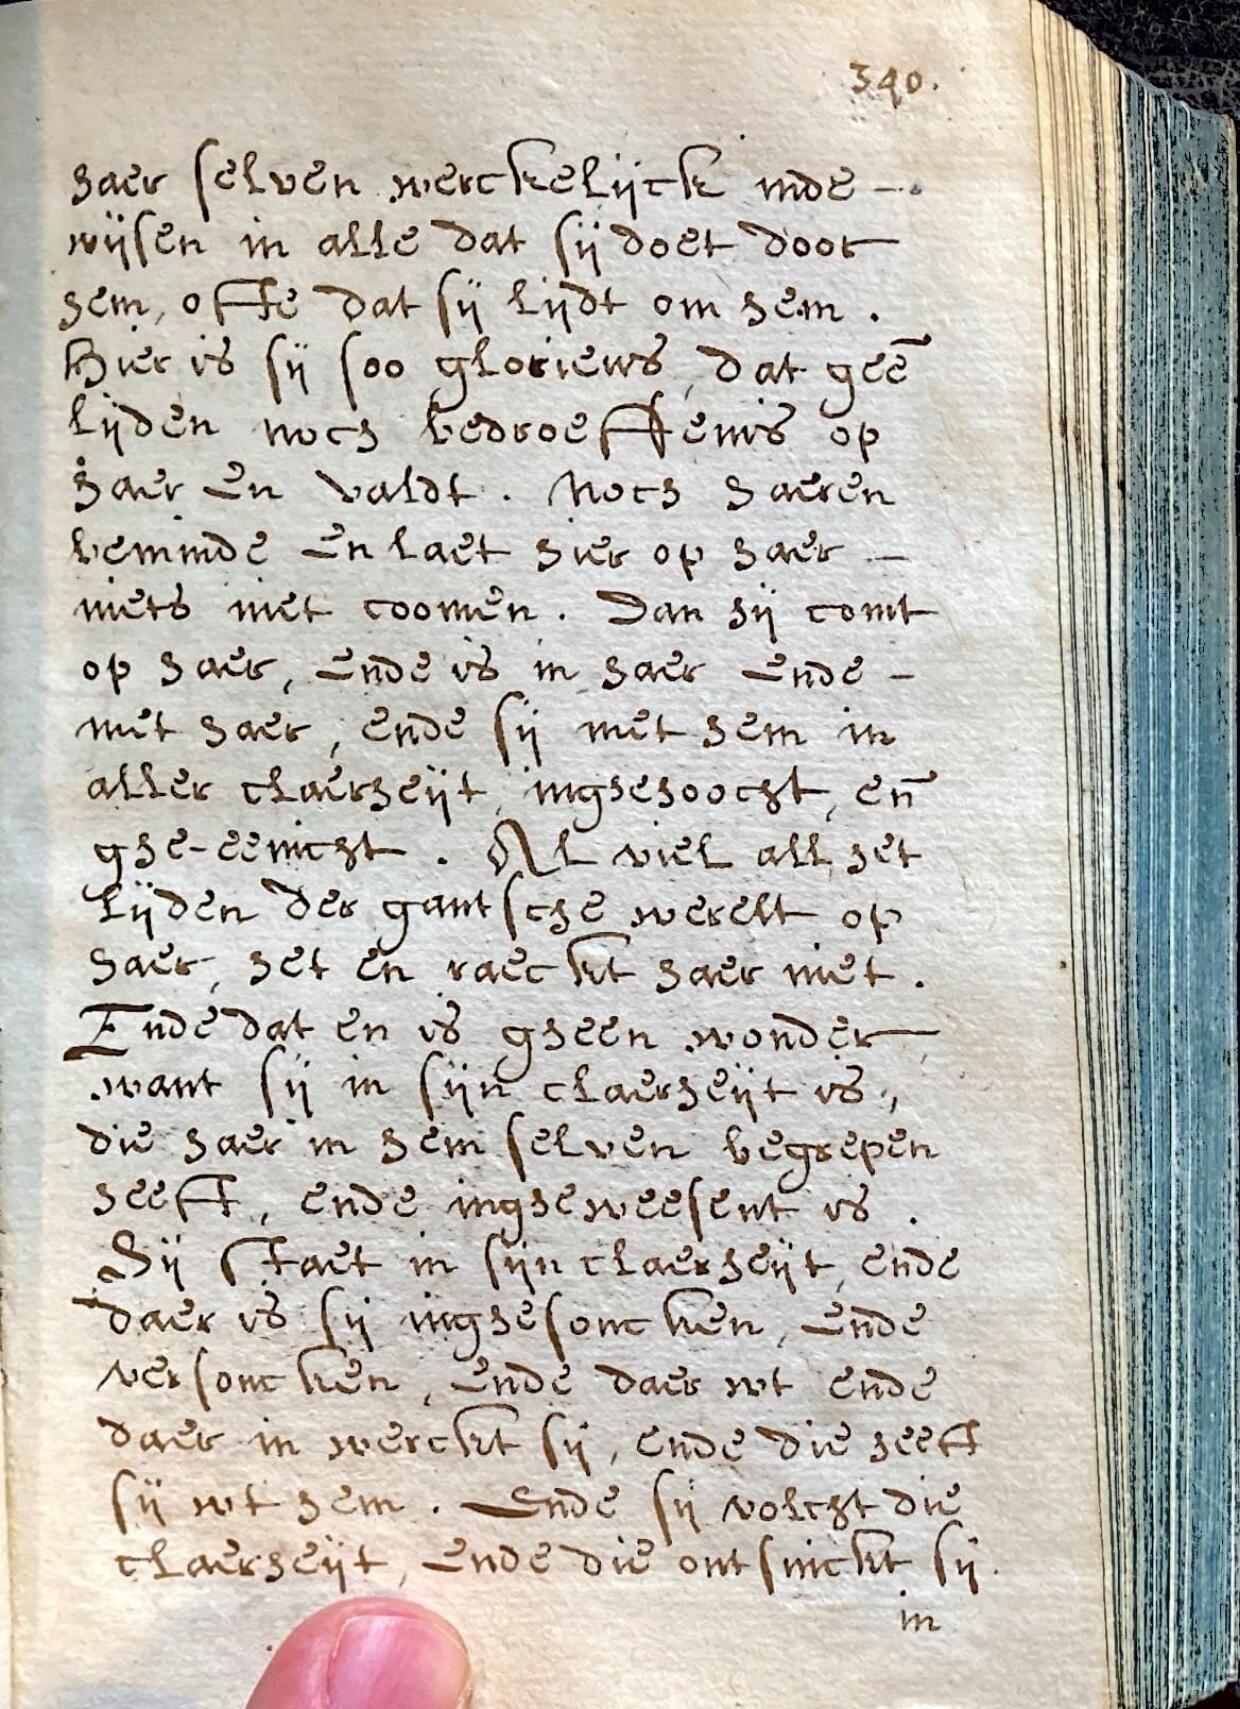 340.
haer selven werckelijck inde –
wijsen in alle dat sij doet door
hem, offte dat sij lijdt om hem.
Hier is sij soo glorieus, dat geē
lijden noch bedroeffenis op
haer en valdt. Noch haeren
beminde en laet hier op haer –
niets niet coomen. Dan hij comt
op haer, ende is in haer ende –
met haer, ende sij met hem in
aller claerheijt, inghehoocht, en̄
ghe-eenicht. Al viel all het
lijden der gantsche werelt op
haer, het en raeckt haer niet.
Ende dat en is gheen wonder
want sij in sijn claerheijt is,
die haer in hem selven begrepen
heeft, ende ingheweesent is.
Sij staet in sijn claerheijt, ende
daer is sij inghesoncken, ende
versoncken, ende daer wt ende
daer in werckt sij, ende die heeft
sij wt hem. Ende sij volcht die
claerheijt, ende die ontsinckt sij.
in